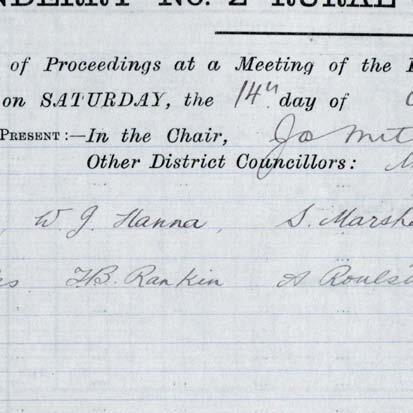 NDERRY No. 2 RURAL
of Proceedings at a Meeting of the
on SATURDAY, the 14th day of
PRESENT:—In the Chair, Jo Mit
Other District Councillors: M
W. J. Hanna, S. Marsha
H.B. Rankin A Rouls